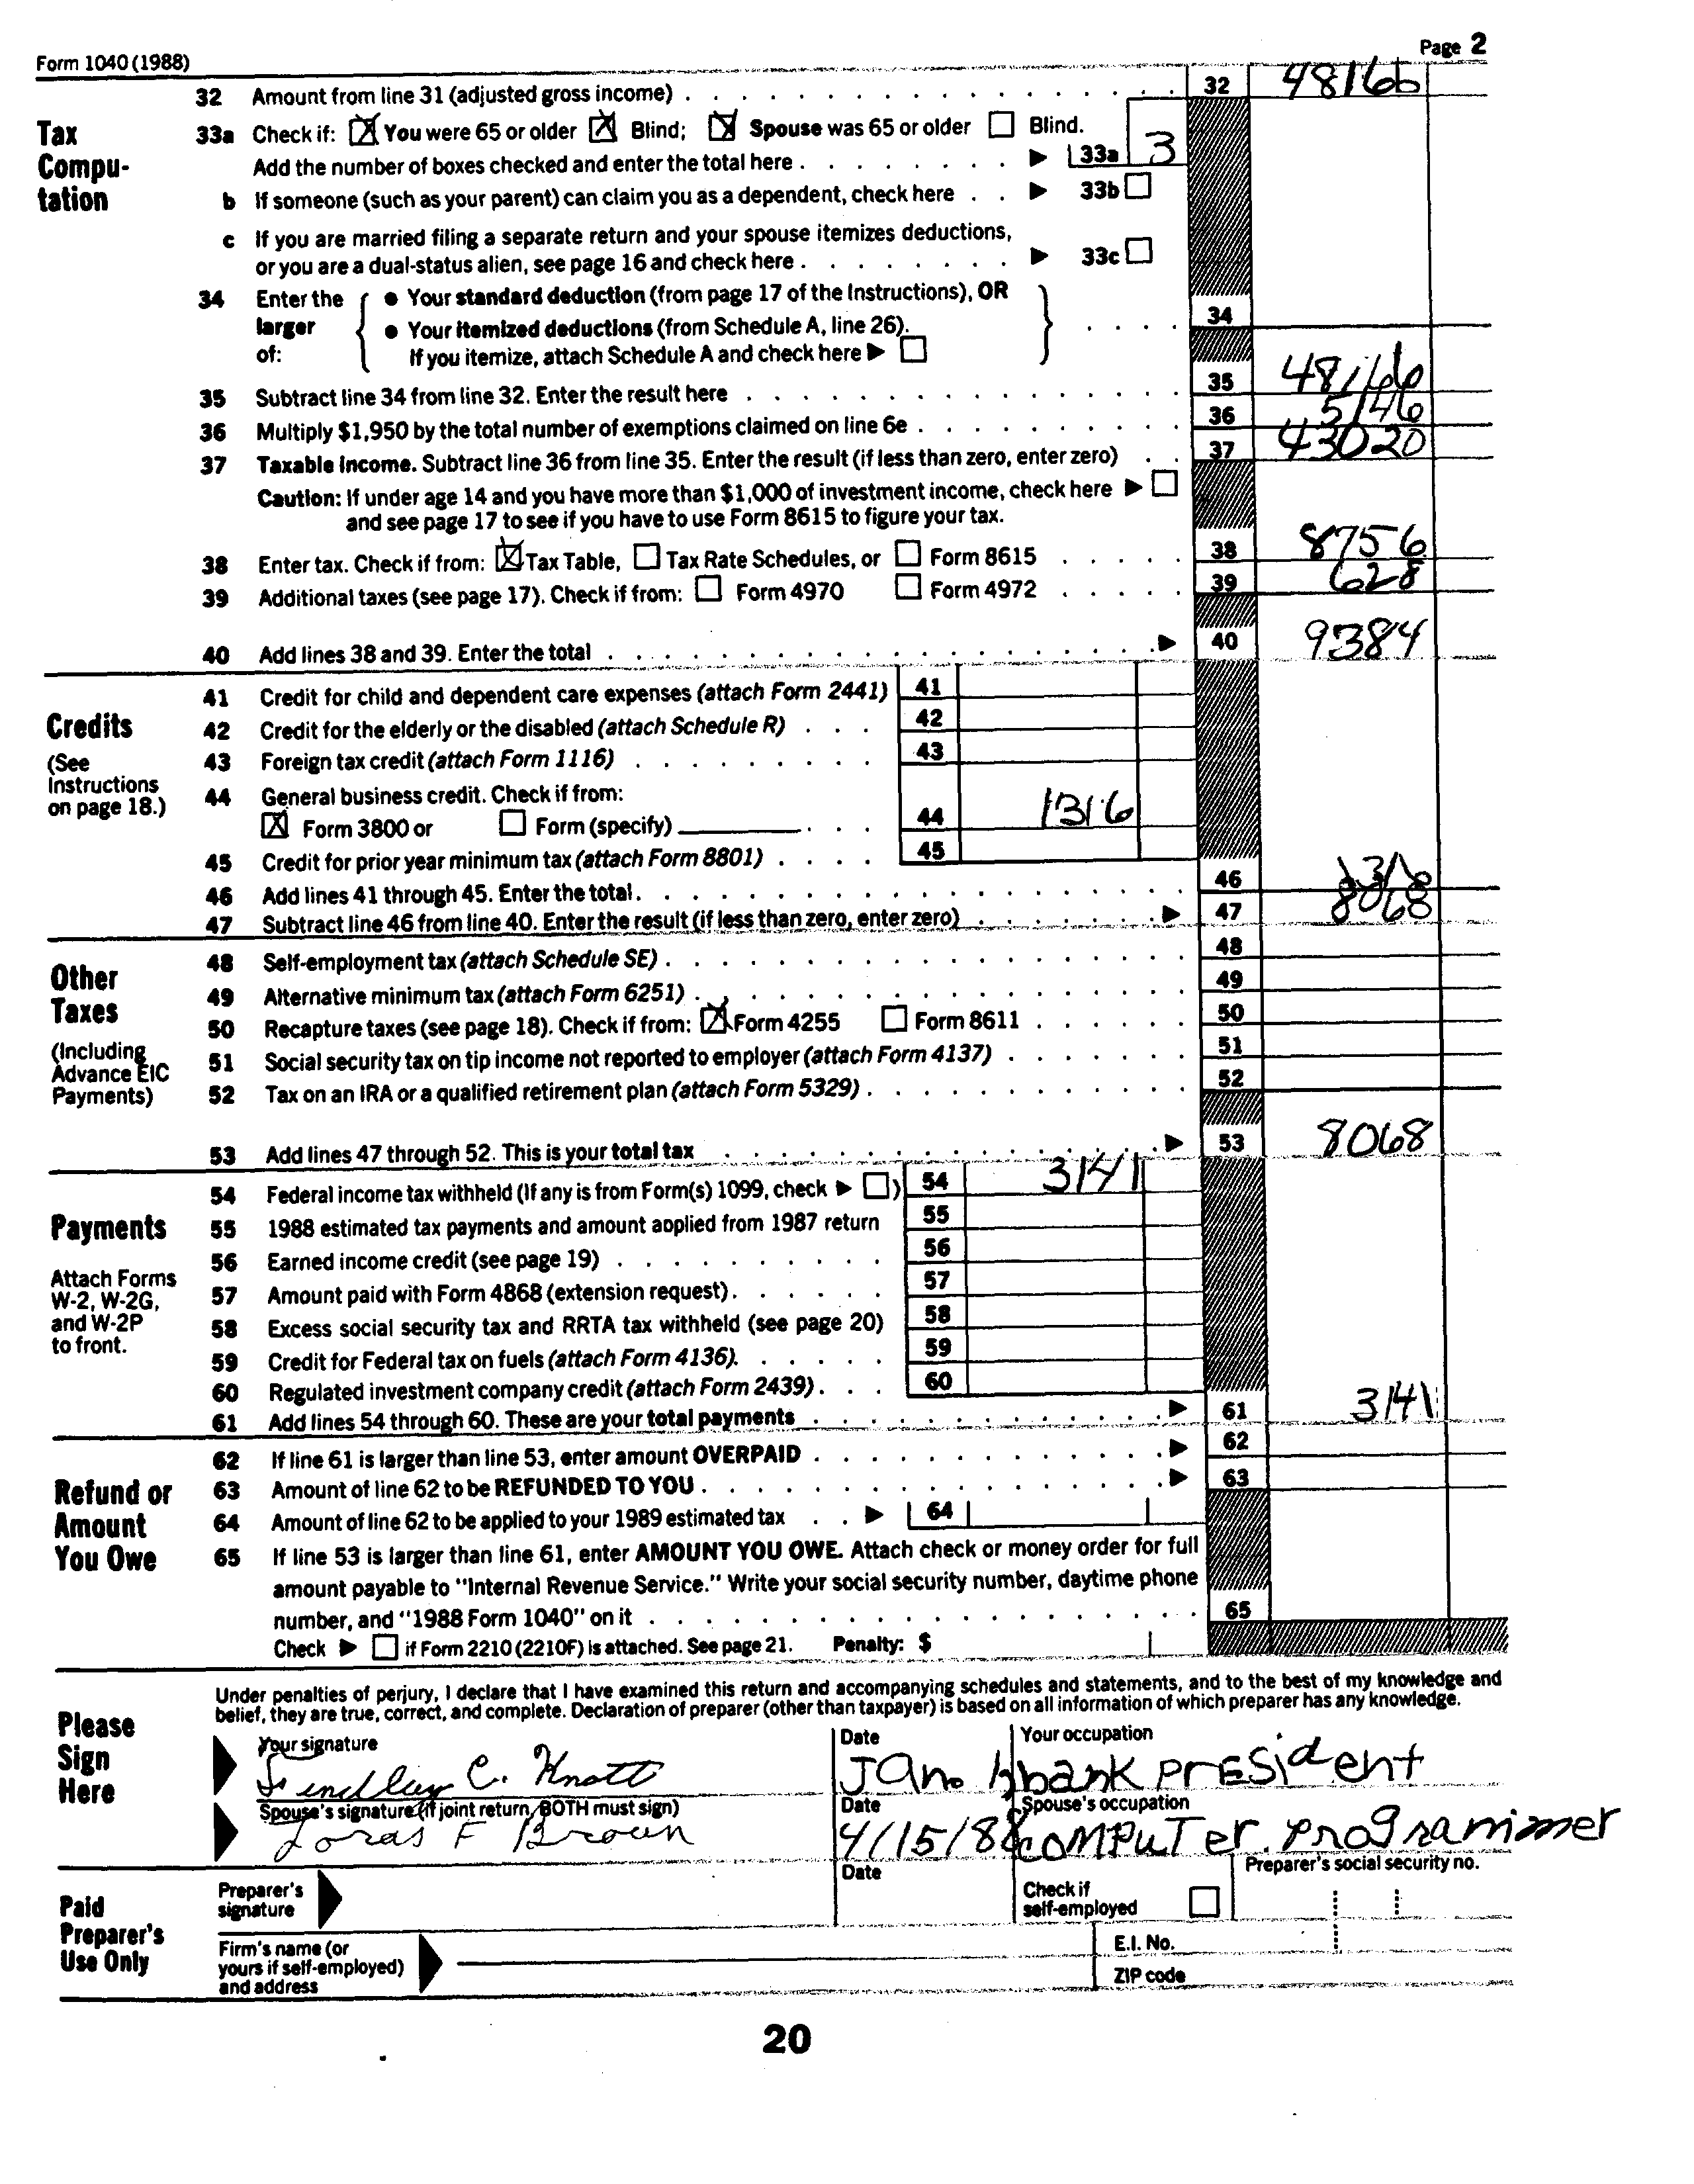 Form 1040 (1988) Page 2
32 Amount from line 31 (adjusted gross income) 32 48166
Tax Compu- tation
33a Check if: You were 65 or older Blind; Spouse was 65 or older Blind.
Add the number of boxes checked and enter the total here 33a 3
b If someone (such as your parent) can claim you as a dependent, check here 33b
c If you are married filing a separate return and your spouse itemizes deductions,
or you are a dual-status alien, see page 16 and check here 33c
34 Enter the larger of:
● Your standard deduction (from page 17 of the Instructions), OR
● Your itemized deductions (from Schedule A, line 26).
If you itemize, attach Schedule A and check here
34
35 Subtract line 34 from line 32. Enter the result here 35 48166
36 Multiply $1,950 by the total number of exemptions claimed on line 6e 36 5146
37 Taxable income. Subtract line 36 from line 35. Enter the result (if less than zero, enter zero) 37 43020
Caution: If under age 14 and you have more than $1,000 of investment income, check here
and see page 17 to see if you have to use Form 8615 to figure your tax.
38 Enter tax. Check if from: Tax Table, Tax Rate Schedules, or Form 8615 38 8756
39 Additional taxes (see page 17). Check if from: Form 4970 Form 4972 39 628
40 Add lines 38 and 39. Enter the total 40 9384
Credits
(See Instructions on page 18.)
41 Credit for child and dependent care expenses (attach Form 2441) 41
42 Credit for the elderly or the disabled (attach Schedule R) 42
43 Foreign tax credit (attach Form 1116) 43
44 General business credit. Check if from:
Form 3800 or Form (specify) 44 1316
45 Credit for prior year minimum tax (attach Form 8801) 45
46 Add lines 41 through 45. Enter the total 46 1316
47 Subtract line 46 from line 40. Enter the result (if less than zero, enter zero) 47 8068
Other Taxes
(Including Advance EIC Payments)
48 Self-employment tax (attach Schedule SE) 48
49 Alternative minimum tax (attach Form 6251) 49
50 Recapture taxes (see page 18). Check if from: Form 4255 Form 8611 50
51 Social security tax on tip income not reported to employer (attach Form 4137) 51
52 Tax on an IRA or a qualified retirement plan (attach Form 5329) 52
53 Add lines 47 through 52. This is your total tax 53 8068
Payments
Attach Forms W-2, W-2G, and W-2P to front.
54 Federal income tax withheld (If any is from Form(s) 1099, check ) 54 3141
55 1988 estimated tax payments and amount applied from 1987 return 55
56 Earned income credit (see page 19) 56
57 Amount paid with Form 4868 (extension request) 57
58 Excess social security tax and RRTA tax withheld (see page 20) 58
59 Credit for Federal tax on fuels (attach Form 4136). 59
60 Regulated investment company credit (attach Form 2439) 60
61 Add lines 54 through 60. These are your total payments 61 3141
Refund or Amount You Owe
62 If line 61 is larger than line 53, enter amount OVERPAID 62
63 Amount of line 62 to be REFUNDED TO YOU 63
64 Amount of line 62 to be applied to your 1989 estimated tax 64
65 If line 53 is larger than line 61, enter AMOUNT YOU OWE. Attach check or money order for full
amount payable to "Internal Revenue Service." Write your social security number, daytime phone
number, and "1988 Form 1040" on it 65
Check if Form 2210 (2210F) is attached. See page 21. Penalty: $
Please Sign Here
Under penalties of perjury, I declare that I have examined this return and accompanying schedules and statements, and to the best of my knowledge and
belief, they are true, correct, and complete. Declaration of preparer (other than taxpayer) is based on all information of which preparer has any knowledge.
Your signature Date Your occupation
Findlay C. Knott Jan. bank PRESident
Spouse's signature (if joint return, BOTH must sign) Date Spouse's occupation
Loras F Brown 4/15/88 COMPUTer programmer
Paid Preparer's Use Only
Preparer's signature Date Check if self-employed Preparer's social security no.
Firm's name (or yours if self-employed) and address E.I. No.
ZIP code
20